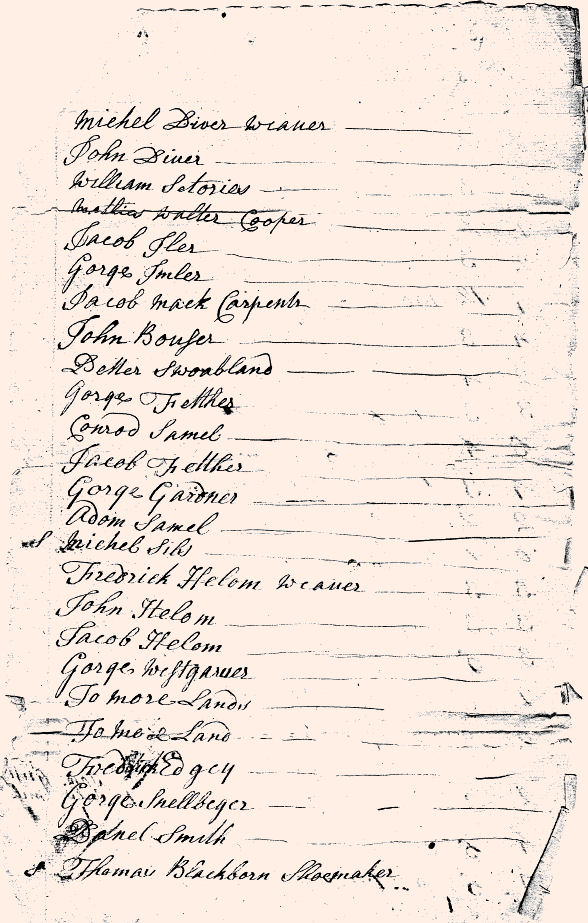 Michel Diver weaver
John Diver
William Storios
Mathias Walter Cooper
Jacob Iler
Gorge Imler
Jacob mack Carpentr
John Bouser
Petter Swoabland
Gorge Fetther
Conrod Samel
Jacob Fetther
Gorge Gardner
Adom Samel
s Michel Sibs
Fredrick Helom weaver
John Helom
Jacob Helom
Gorge Westgarver
To more Lands
To more Land
Fredrick Edgey
Gorge Snellbeger
Danel Smith
s Thomas Blackborn Shoemaker